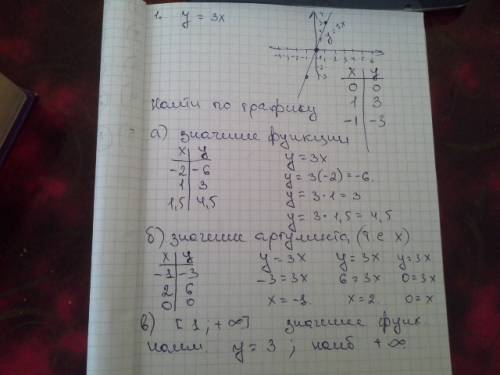 1. y = 3x
y = 3x
x | y
0 | 0
1 | 3
-1 | -3
Найти по графику
а) значение функции
x | y
-2 | -6
1 | 3
1,5 | 4,5
y = 3x
y = 3(-2) = -6.
y = 3·1 = 3
y = 3·1,5 = 4,5
б) значение аргумента (т.е x)
x | y
-1 | -3
2 | 6
0 | 0
y = 3x y = 3x y = 3x
-3 = 3x 6 = 3x 0 = 3x
x = -1. x = 2. 0 = x
в) [1; +∞] значение функ.
наим. y = 3 ; наиб +∞